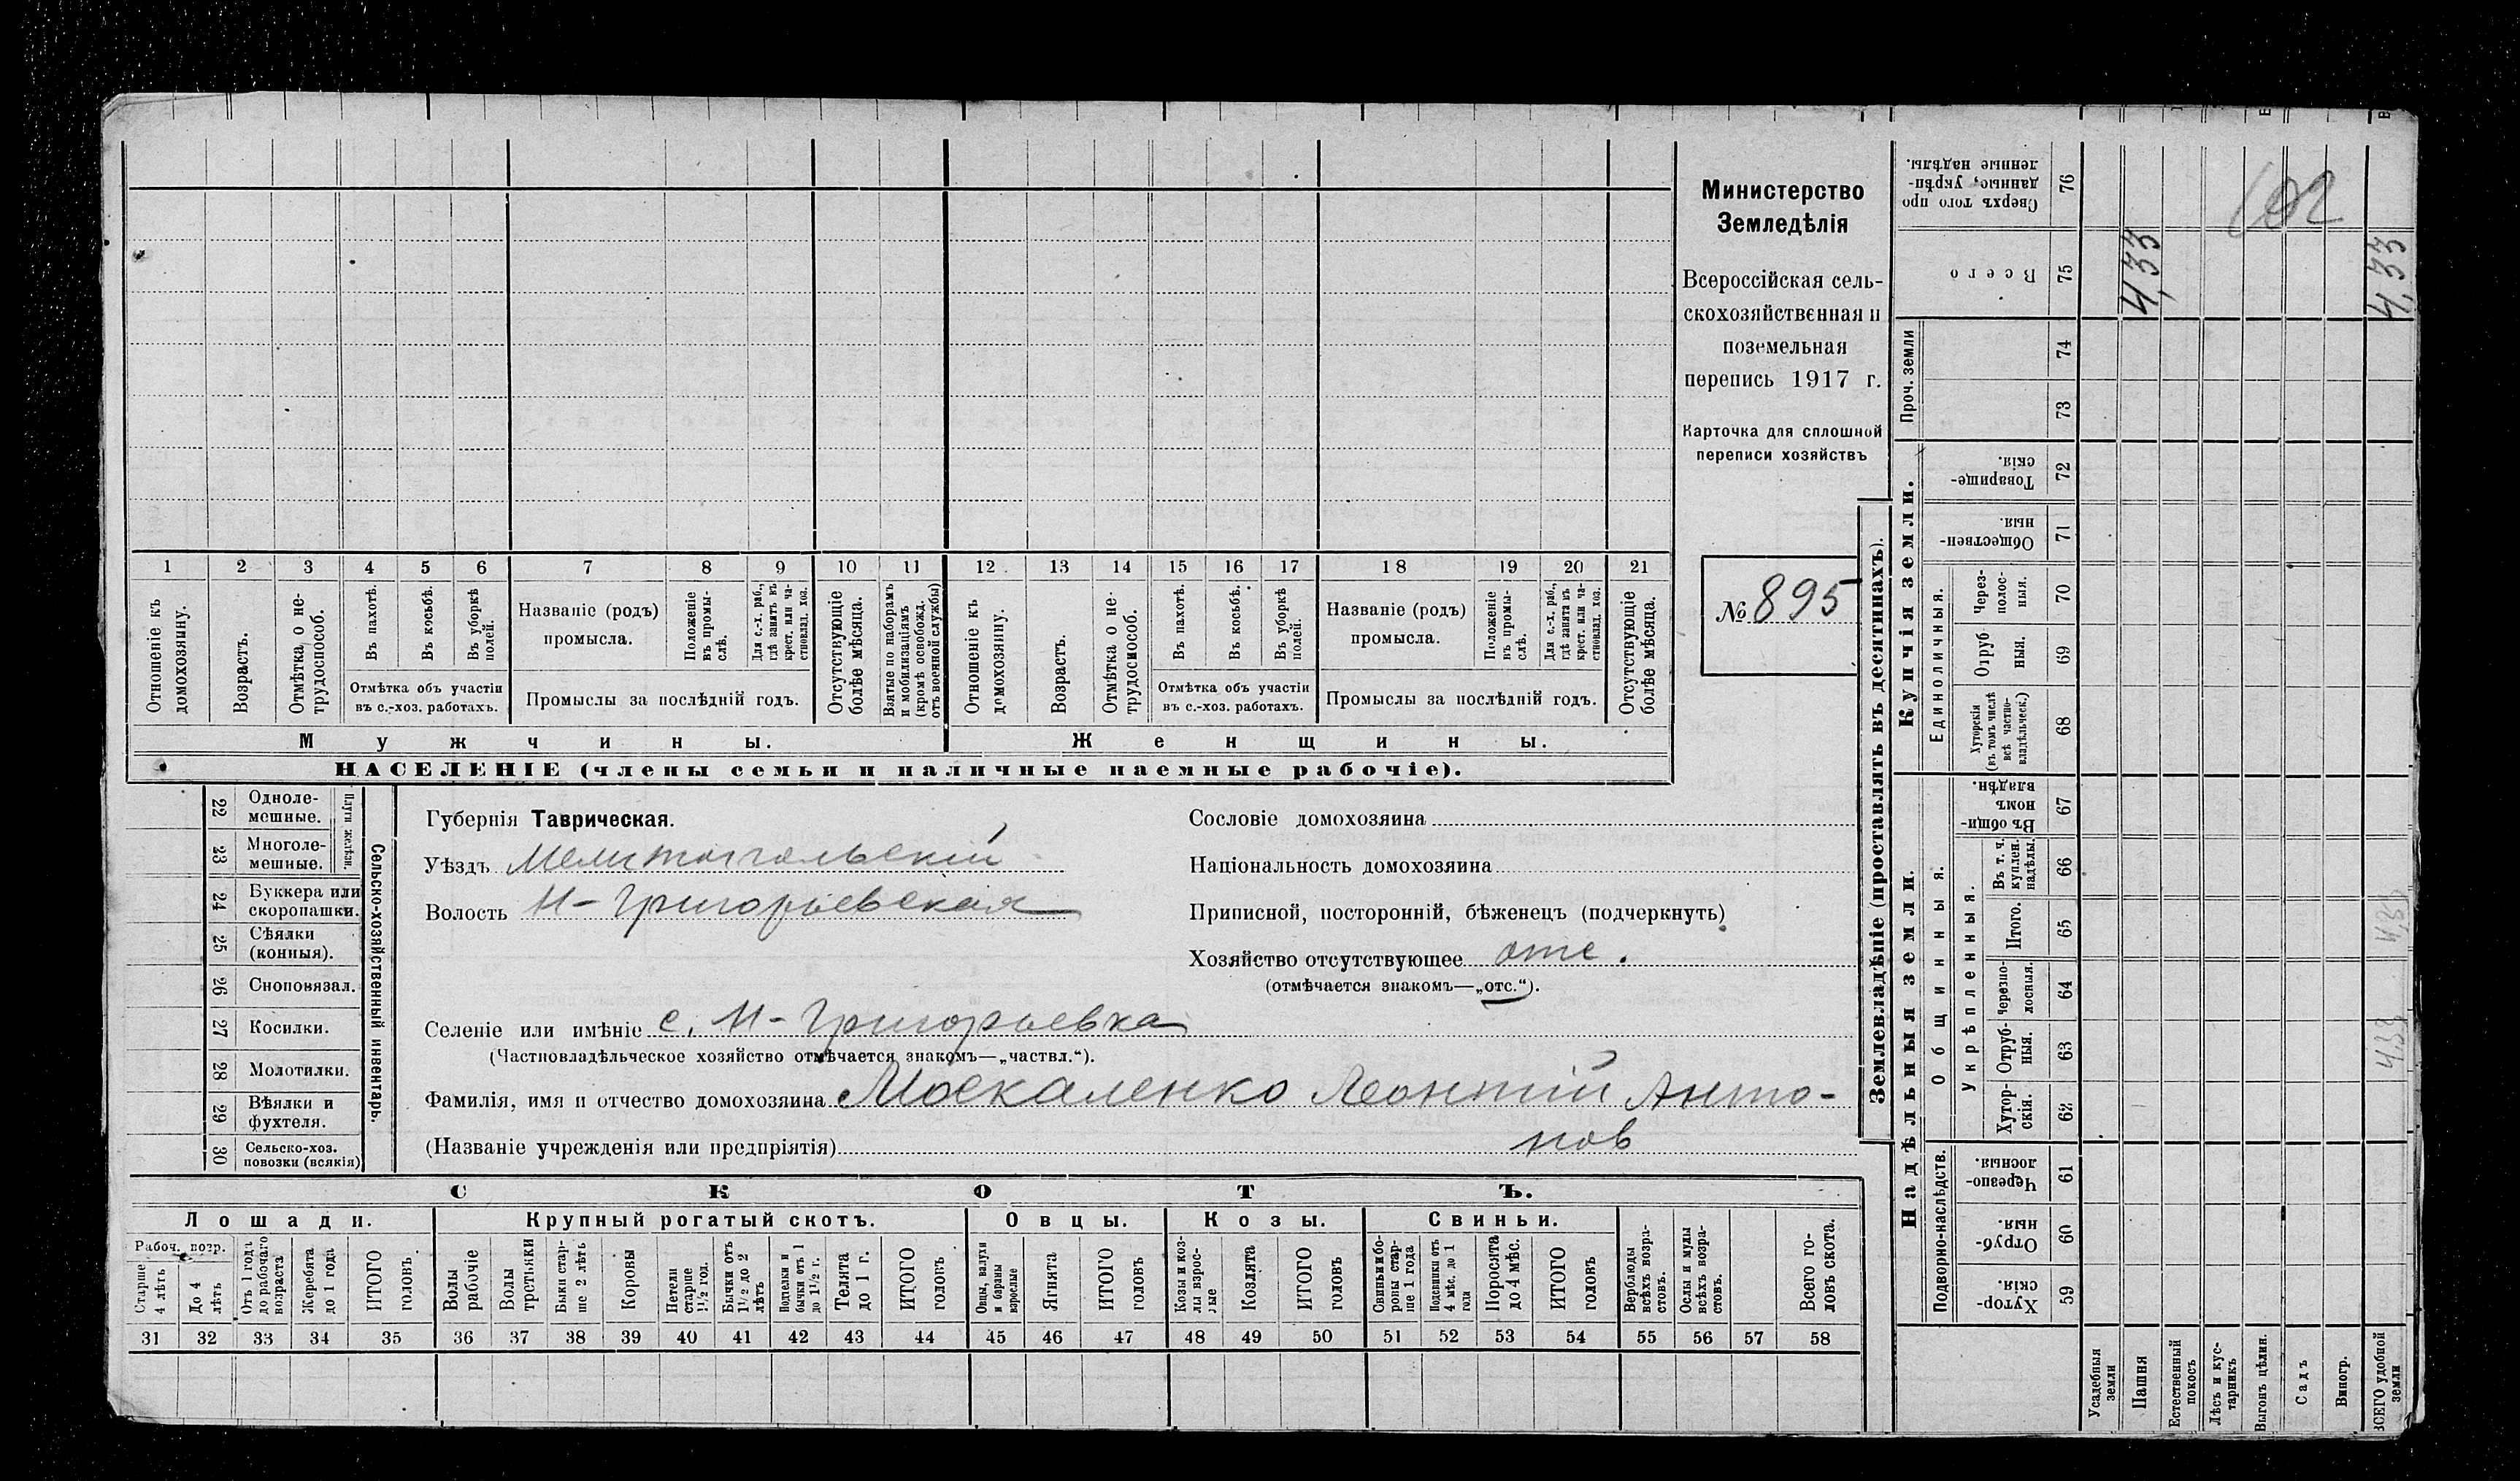 Министерство
Земледѣлія
Всероссійская сель-
скохозяйственная и
поземельная
перепись 1917 г.
Карточка для сплошной
переписи хозяйствъ
№ 895
1 2 3 4 5 6 7 8 9 10 11 12 13 14 15 16 17 18 19 20 21
Отношеніе къ домохозяину.
Возрастъ.
Отмѣтка о не-трудоспособ.
Въ пахотѣ.
Въ косьбѣ.
Въ уборкѣ полей.
Отмѣтка объ участіи
въ с.-хоз. работахъ.
Названіе (родъ)
промысла.
Положеніе въ промы-слѣ.
Для с.-х. раб., гдѣ занятъ въ крест. или ча-стновлад. хоз.
Промыслы за послѣдній годъ.
Отсутствующіе болѣе мѣсяца.
Взятые по наборамъ и мобилизаціямъ (кромѣ освобожд. отъ военной службы)
Отношеніе къ домохозяину.
Возрастъ.
Отмѣтка о не-трудоспособ.
Въ пахотѣ.
Въ косьбѣ.
Въ уборкѣ полей.
Отмѣтка объ участіи
въ с.-хоз. работахъ.
Названіе (родъ)
промысла.
Положеніе въ промы-слѣ.
Для с.-х. раб., гдѣ занята въ крест. или ча-стновлад. хоз.
Промыслы за послѣдній годъ.
Отсутствующіе болѣе мѣсяца.
Мужчины.
Женщины.
НАСЕЛЕНІЕ (члены семьи и наличные наемные рабочіе).
22 Одноле-мешные.
23 Многоле-мешные.
Плуги желѣзн.
24 Буккера или скоропашки.
25 Сѣялки (конныя).
26 Сноповязал.
27 Косилки.
28 Молотилки.
29 Вѣялки и фухтеля.
30 Сельско-хоз. повозки (всякія)
Сельско-хозяйственный инвентарь.
Губернія Таврическая.
Уѣздъ Мелитопольскій
Волость Н-Григорьевская
Селеніе или имѣніе с. Н-Григорьевка
(Частновладѣльческое хозяйство отмѣчается знакомъ—„частвл.“).
Фамилія, имя и отчество домохозяина Москаленко Леонтій Анто-
нов
(Названіе учрежденія или предпріятія)
Сословіе домохозяина
Національность домохозяина
Приписной, посторонній, бѣженецъ (подчеркнуть)
Хозяйство отсутствующее отс.
(отмѣчается знакомъ—„отс.“).
СКОТЪ.
Лошади.
Крупный рогатый скотъ.
Овцы.
Козы.
Свиньи.
Рабоч. возр.
Старше 4 лѣтъ
До 4 лѣтъ
Отъ 1 года до рабочаго возраста
Жеребята до 1 года
ИТОГО головъ
Волы рабочіе
Волы третьяки
Быки стар-ше 2 лѣтъ
Коровы
Петели старше 1½ год.
Бычки отъ 1½ до 2 лѣтъ
Подтелки и бычки отъ 1 до 1½ г.
Телята до 1 г.
ИТОГО головъ
Овцы, валухи и бараны взрослые
Ягнята
ИТОГО головъ
Козы и коз-лы взрос-лые
Козлята
ИТОГО головъ
Свиньи и бо-ровы стар-ше 1 года
Подсвинки отъ 4 мѣс. до 1 года
Поросята до 4 мѣс.
ИТОГО головъ
Верблюды всѣхъ возра-стовъ.
Ослы и мулы всѣхъ возра-стовъ.
Всего го-ловъ скота.
31 32 33 34 35 36 37 38 39 40 41 42 43 44 45 46 47 48 49 50 51 52 53 54 55 56 57 58
Землевладѣніе (проставлять въ десятинахъ).
Сверхъ того про-данные, укрѣп-ленные надѣлы. 76
Всего 75
4,33
4,33
Проч. земли
74
73
Купчія земли.
Товарище-скія. 72
Обществен-ныя. 71
Единоличныя.
Через-полос-ныя. 70
Отруб-ныя. 69
Хуторскія (въ томъ числѣ всѣ частно-владѣльческ.) 68
Надѣльныя земли.
Общинныя.
Въ общи-номъ владѣн. 67
Укрѣпленныя.
Въ т. ч. куплен. надѣлы. 66
Итого. 65
Черезпо-лосныя. 64
Отруб-ныя. 63
Хутор-скія. 62
Подворно-наслѣдств.
Черезпо-лосныя. 61
Отруб-ныя. 60
Хутор-скія. 59
Усадебныя земли
Пашня
Естественный покосъ
Лѣсъ и кус-тарникъ
Выгонъ цѣлин.
Садъ
Виногр.
ВСЕГО удобной земли